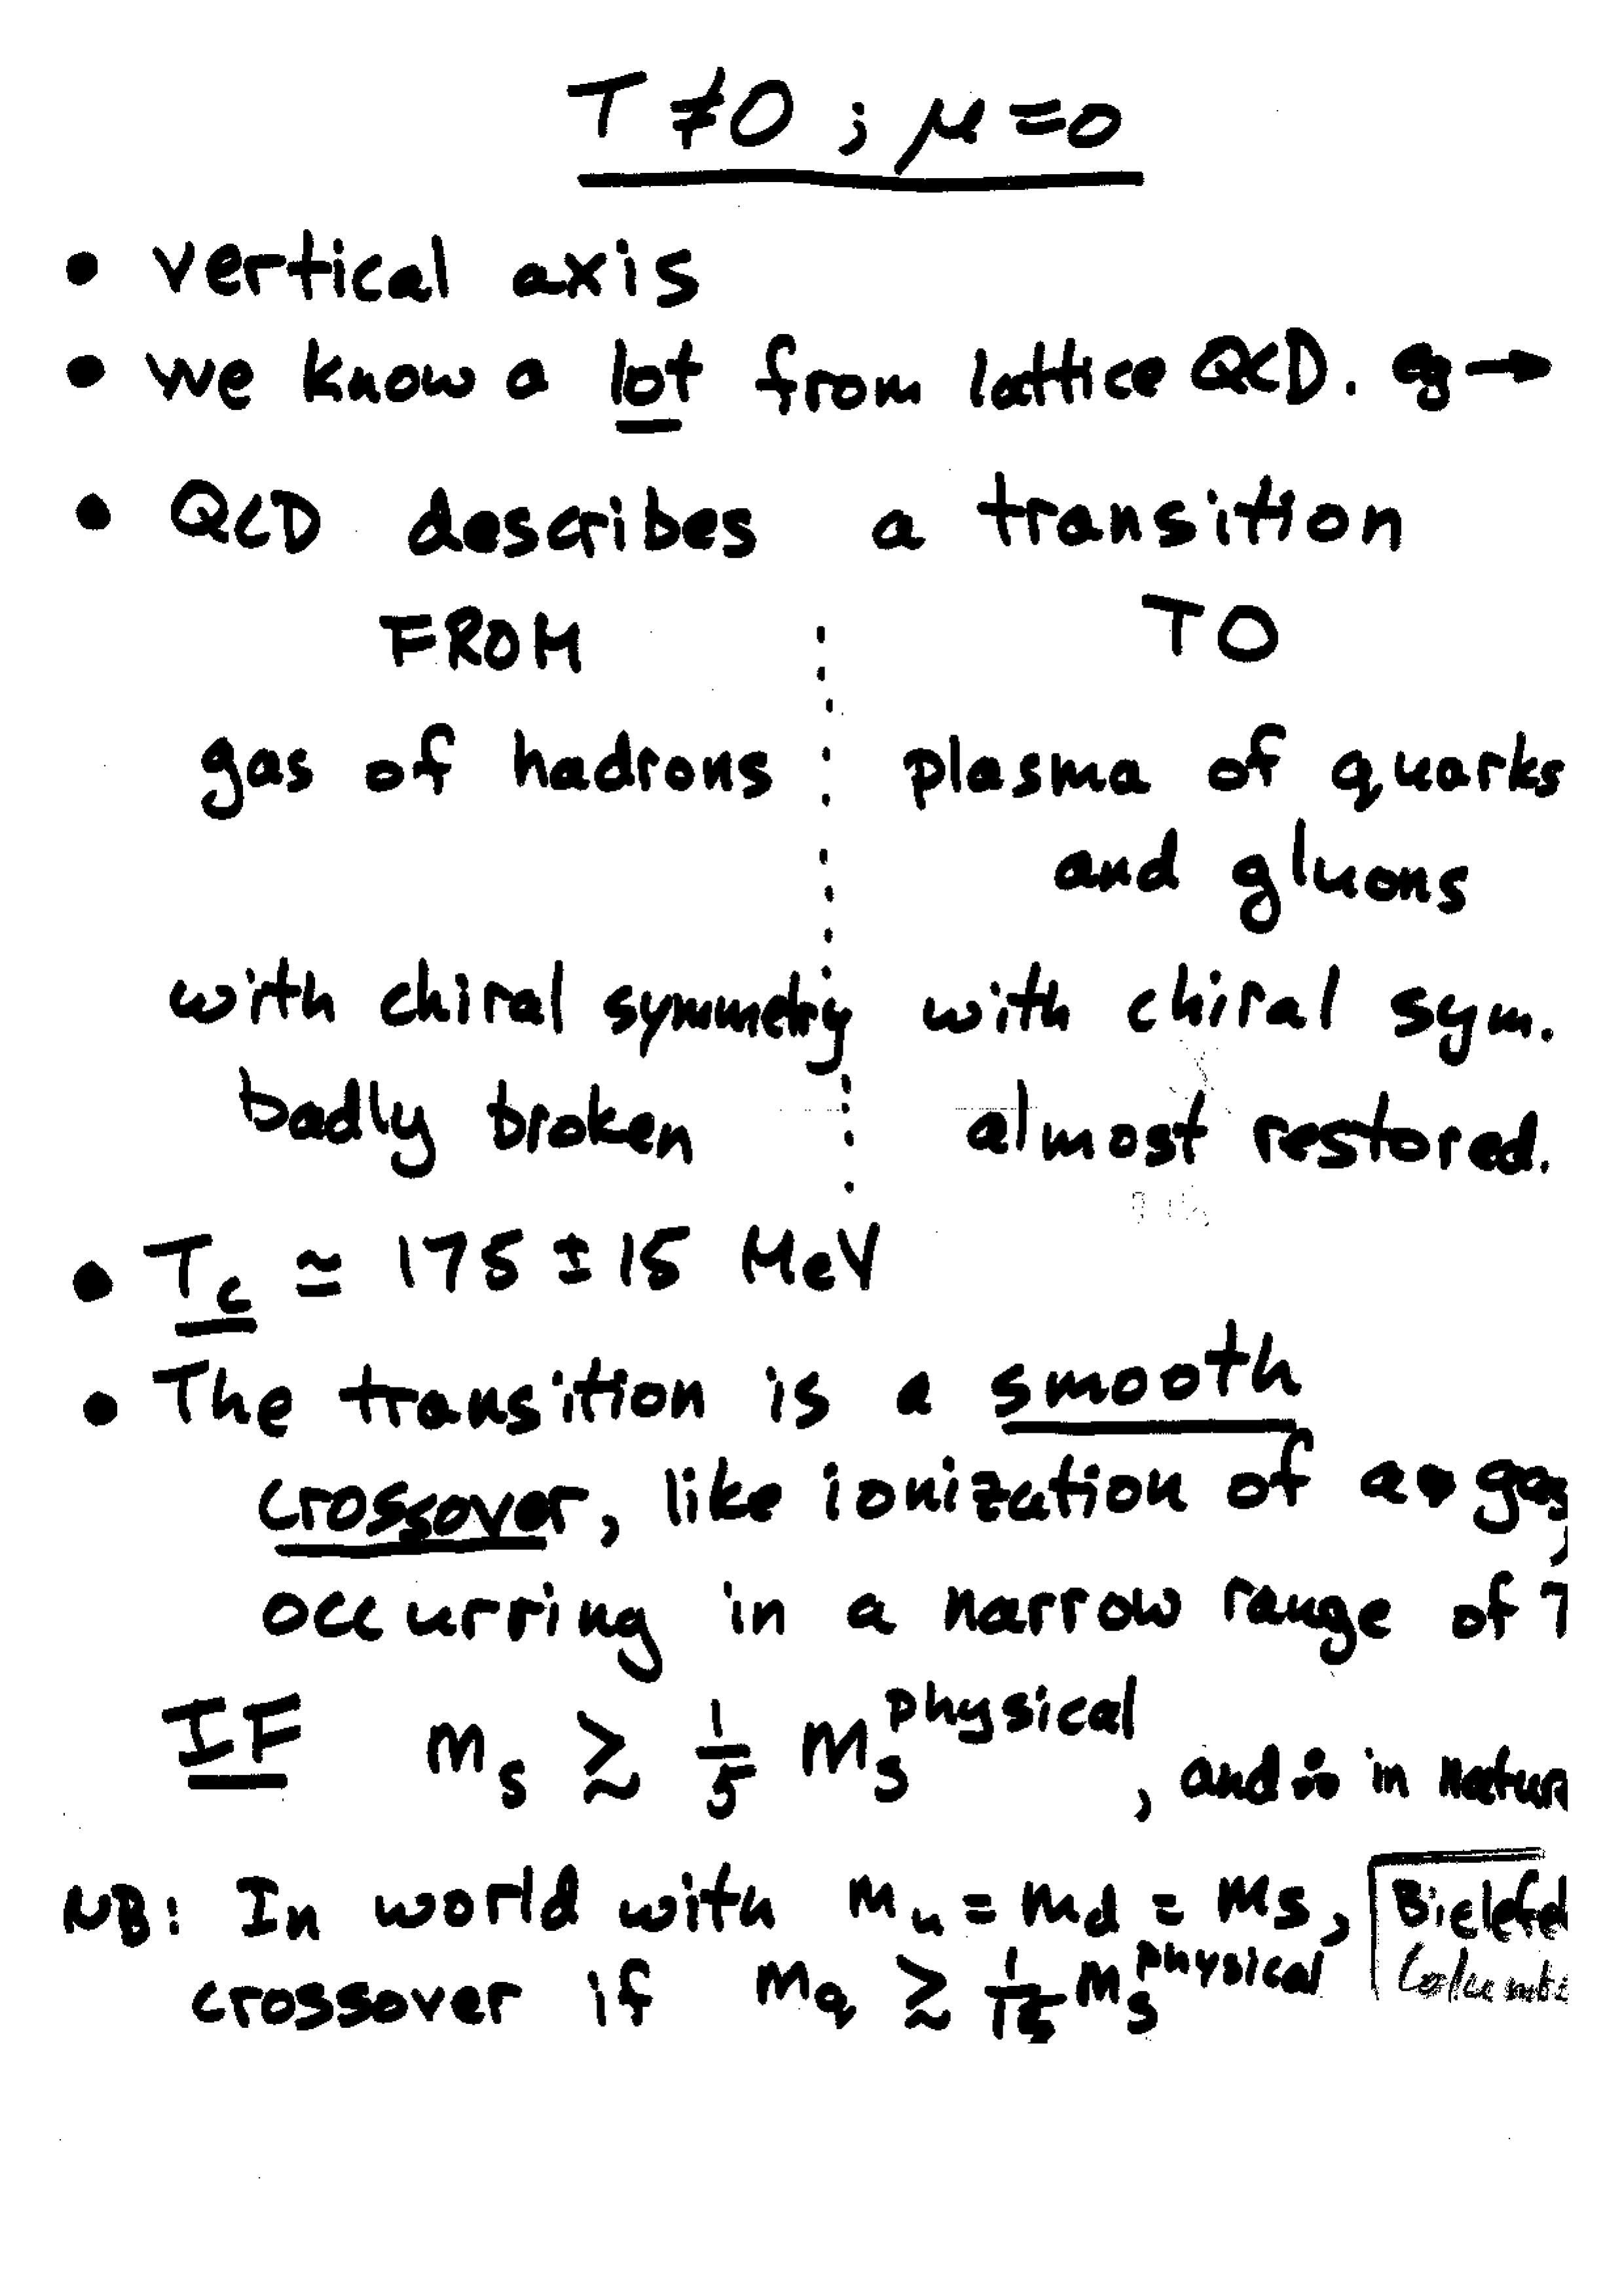 T ≠ 0 ; μ = 0
• vertical axis
• we know a lot from lattice QCD. eg →
• QCD describes a transition
FROM TO
gas of hadrons plasma of quarks
and gluons
with chiral symmetry with chiral sym.
badly broken almost restored.
• Tc ≃ 175 ± 15 MeV
• The transition is a smooth
crossover, like ionization of a gas,
occurring in a narrow range of T
IF ms ≳ 1/5 ms^physical, and ∴ in natur
NB: In world with mu = md = ms, Bielefel
crossover if mq ≳ ms^physical Columbi